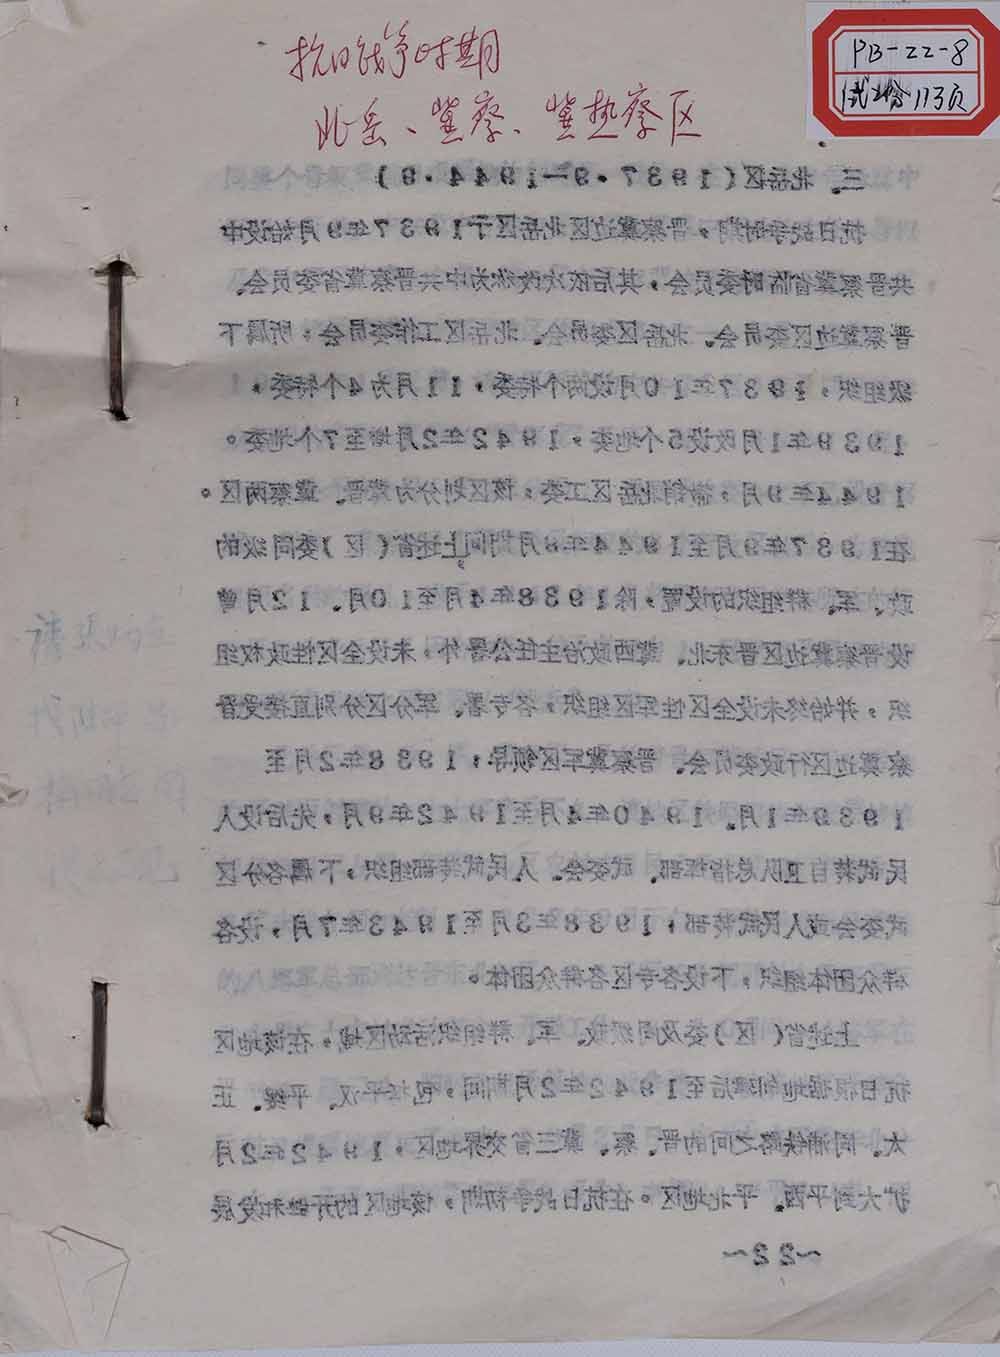 抗日战争时期
北岳、冀察、冀热察区
PB-22-8
113页
三、北岳区(1937·9—1944·9)
抗日战争时期,晋察冀边区北岳区于1937年9月始设中
共晋察冀省临时委员会,其后依次改称为中共晋察冀省委员会、
晋察冀边区委员会、北岳区委员会、北岳区工作委员会;所属下
级组织,1937年10月设两个特委,11月为4个特委,
1939年1月改设5个地委,1942年2月增至7个地委。
1944年9月,撤销北岳区工委,该区划分为冀晋、冀察两区。
在1937年9月至1944年8月期间上述省(区)委同级的
政、军、群组织的设置,除1938年4月至10月、12月曾
设晋察冀边区晋东北、冀西政治主任公署外,未设全区性政权组
织,并始终未设全区性军区组织,各专署、军分区分别直接受晋
察冀边区行政委员会、晋察冀军区领导;1938年2月至
1939年1月、1940年4月至1942年9月,先后设人
民武装自卫队总指挥部、武委会、人民武装部组织,下属各分区
武委会或人民武装部;1938年3月至1943年7月,设各
群众团体组织,下设各专区各群众团体。
上述省(区)委及同级政、军、群组织活动区域,在该地区
抗日根据地创建后至1942年2月期间,包括平汉、平绥、正
太、同浦铁路之间的晋、察、冀三省交界地区,1942年2月
扩大到平西、平北地区。在抗日战争初期,该地区的开辟和发展
~22~